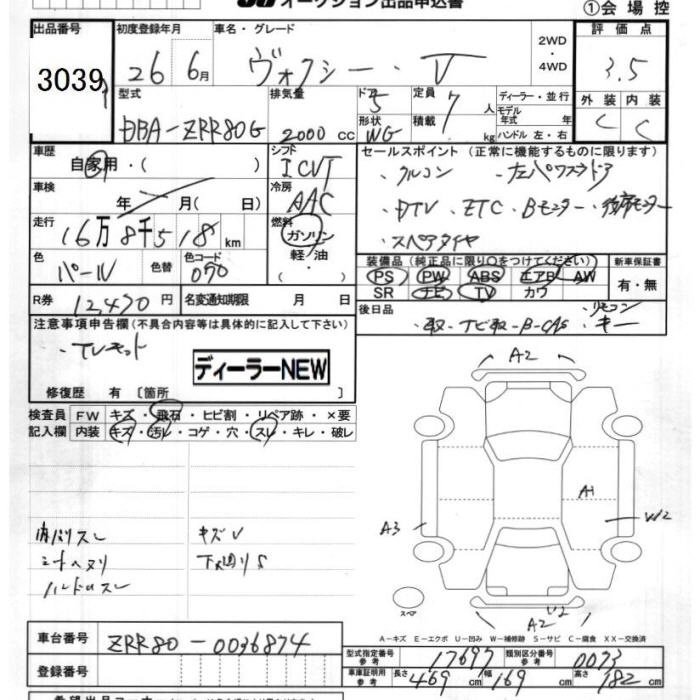 オークション出品申込書
①会場控
出品番号 初度登録年月 車名・グレード 2WD・4WD 評価点
3039 26年 6月 ヴォクシー・V 3.5
型式 排気量 ドア 定員 ディーラー・並行 外装 内装
DBA-ZRR80G 2000cc 5 7人 モデル年式 年 C C
形状 WG 積載 kg ハンドル 左・右
車歴 シフト セールスポイント (正常に機能するものに限ります)
自家用・( ) ICVT ・クルコン ・左パワスラドア
車検 冷房
年 月( 日) AAC ・DTV ・ETC ・Bモニター ・後席モニター
走行 燃料 ・スペアタイヤ
16万8千518km ガソリン
軽油
色 色替 色コード 装備品 (純正品に限り○をつけてください) 新車保証書
パール 070 PS PW ABS エアB AW 有・無
SR ナビ TV カワ
R券 12,470円 名変通知期限 月 日 後日品 ・取・ナビ取・B-CAS ・リモコン ・キー
注意事項申告欄 (不具合内容等は具体的に記入して下さい)
・TVキット
ディーラーNEW
修復歴 有 〔箇所 〕
検査員 FW キズ・飛石・ヒビ割・リペア跡・×要
記入欄 内装 キズ・汚レ・コゲ・穴・スレ・キレ・破レ
内バリスレ キズV
シートヘタリ 下廻りS
ハンドルスレ
A2
A1
A3 W2
スペア
U2
A2
A-キズ E-エクボ U-凹み W-補修跡 S-サビ C-腐食 XX-交換済
車台番号 ZRR80-0036874
型式指定番号 参考 17697 類別区分番号 参考 0073
登録番号
車庫証明用 参考 長さ 469cm 幅 169cm 高さ 182cm